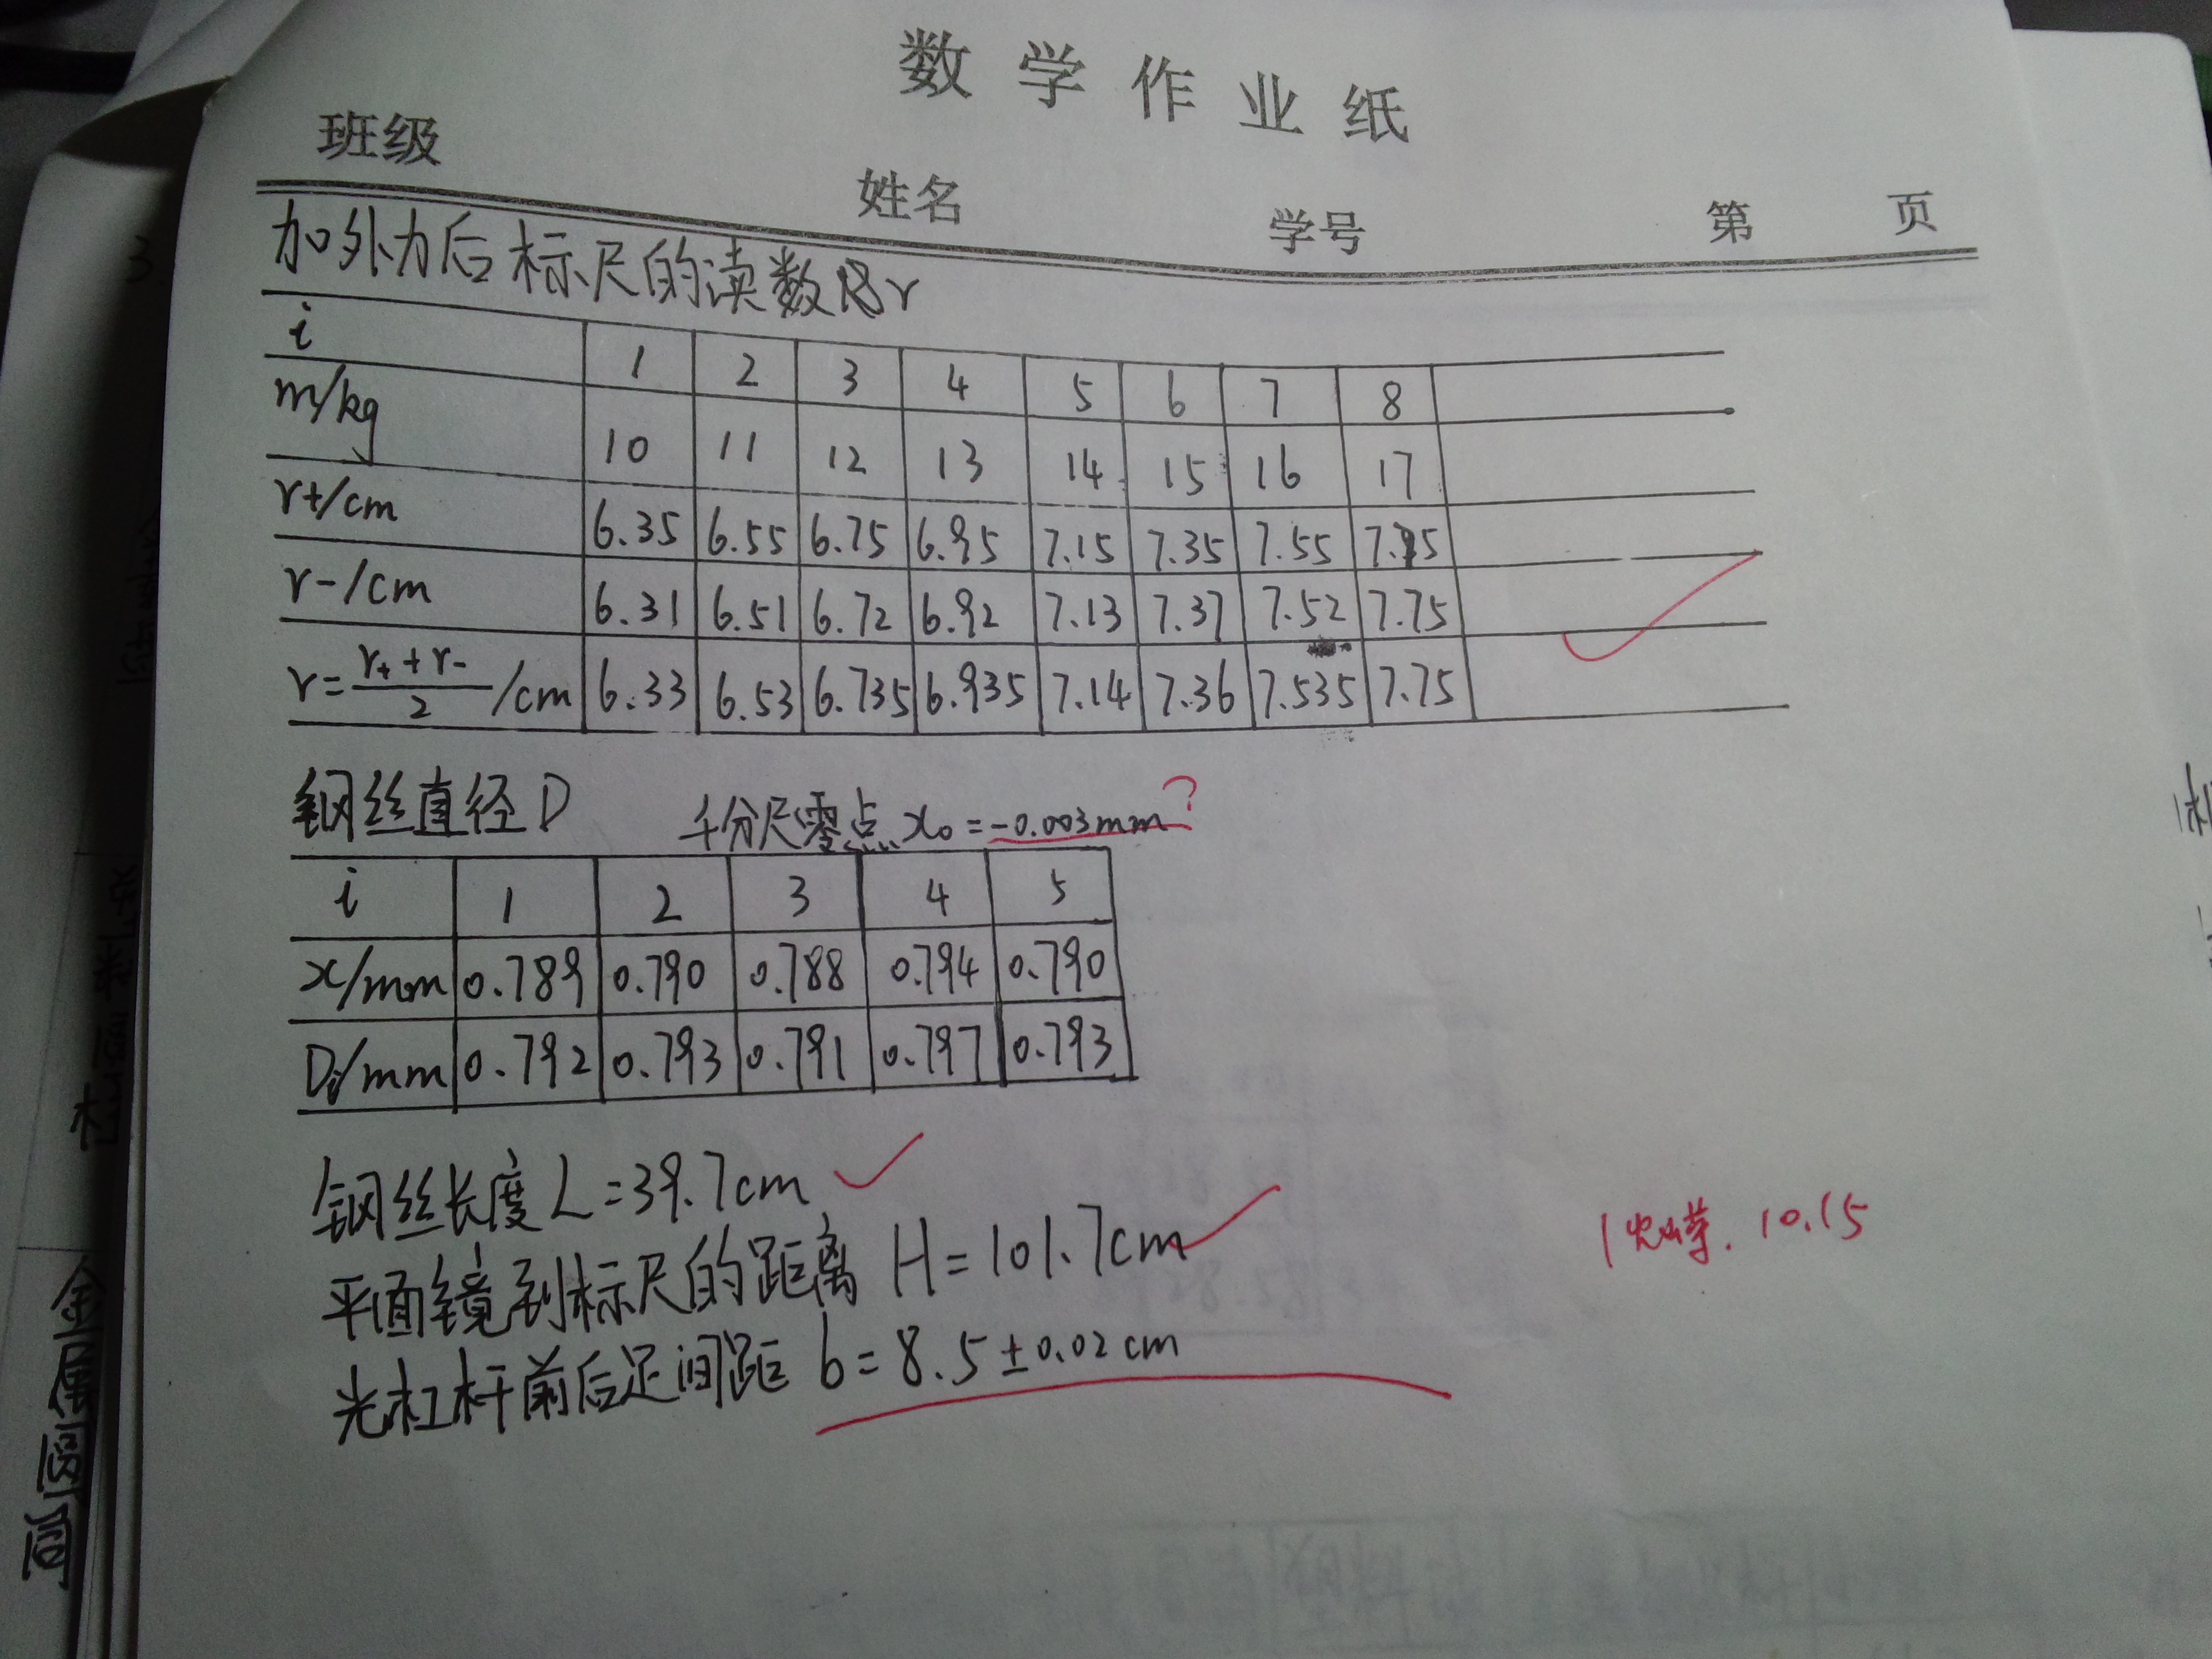 数学作业纸
班级 姓名 学号 第 页
加外力后标尺的读数r
i 1 2 3 4 5 6 7 8
m/kg 10 11 12 13 14 15 16 17
r+/cm 6.35 6.55 6.75 6.95 7.15 7.35 7.55 7.75
r-/cm 6.31 6.51 6.72 6.92 7.13 7.37 7.52 7.75
r=(r+ + r-)/2 /cm 6.33 6.53 6.735 6.935 7.14 7.36 7.535 7.75
钢丝直径D 千分尺零点x₀=-0.003mm?
i 1 2 3 4 5
x/mm 0.789 0.790 0.788 0.794 0.790
Di/mm 0.792 0.793 0.791 0.797 0.793
钢丝长度L=39.7cm
平面镜到标尺的距离 H=101.7cm
10.15
光杠杆前后足间距 b=8.5±0.02cm